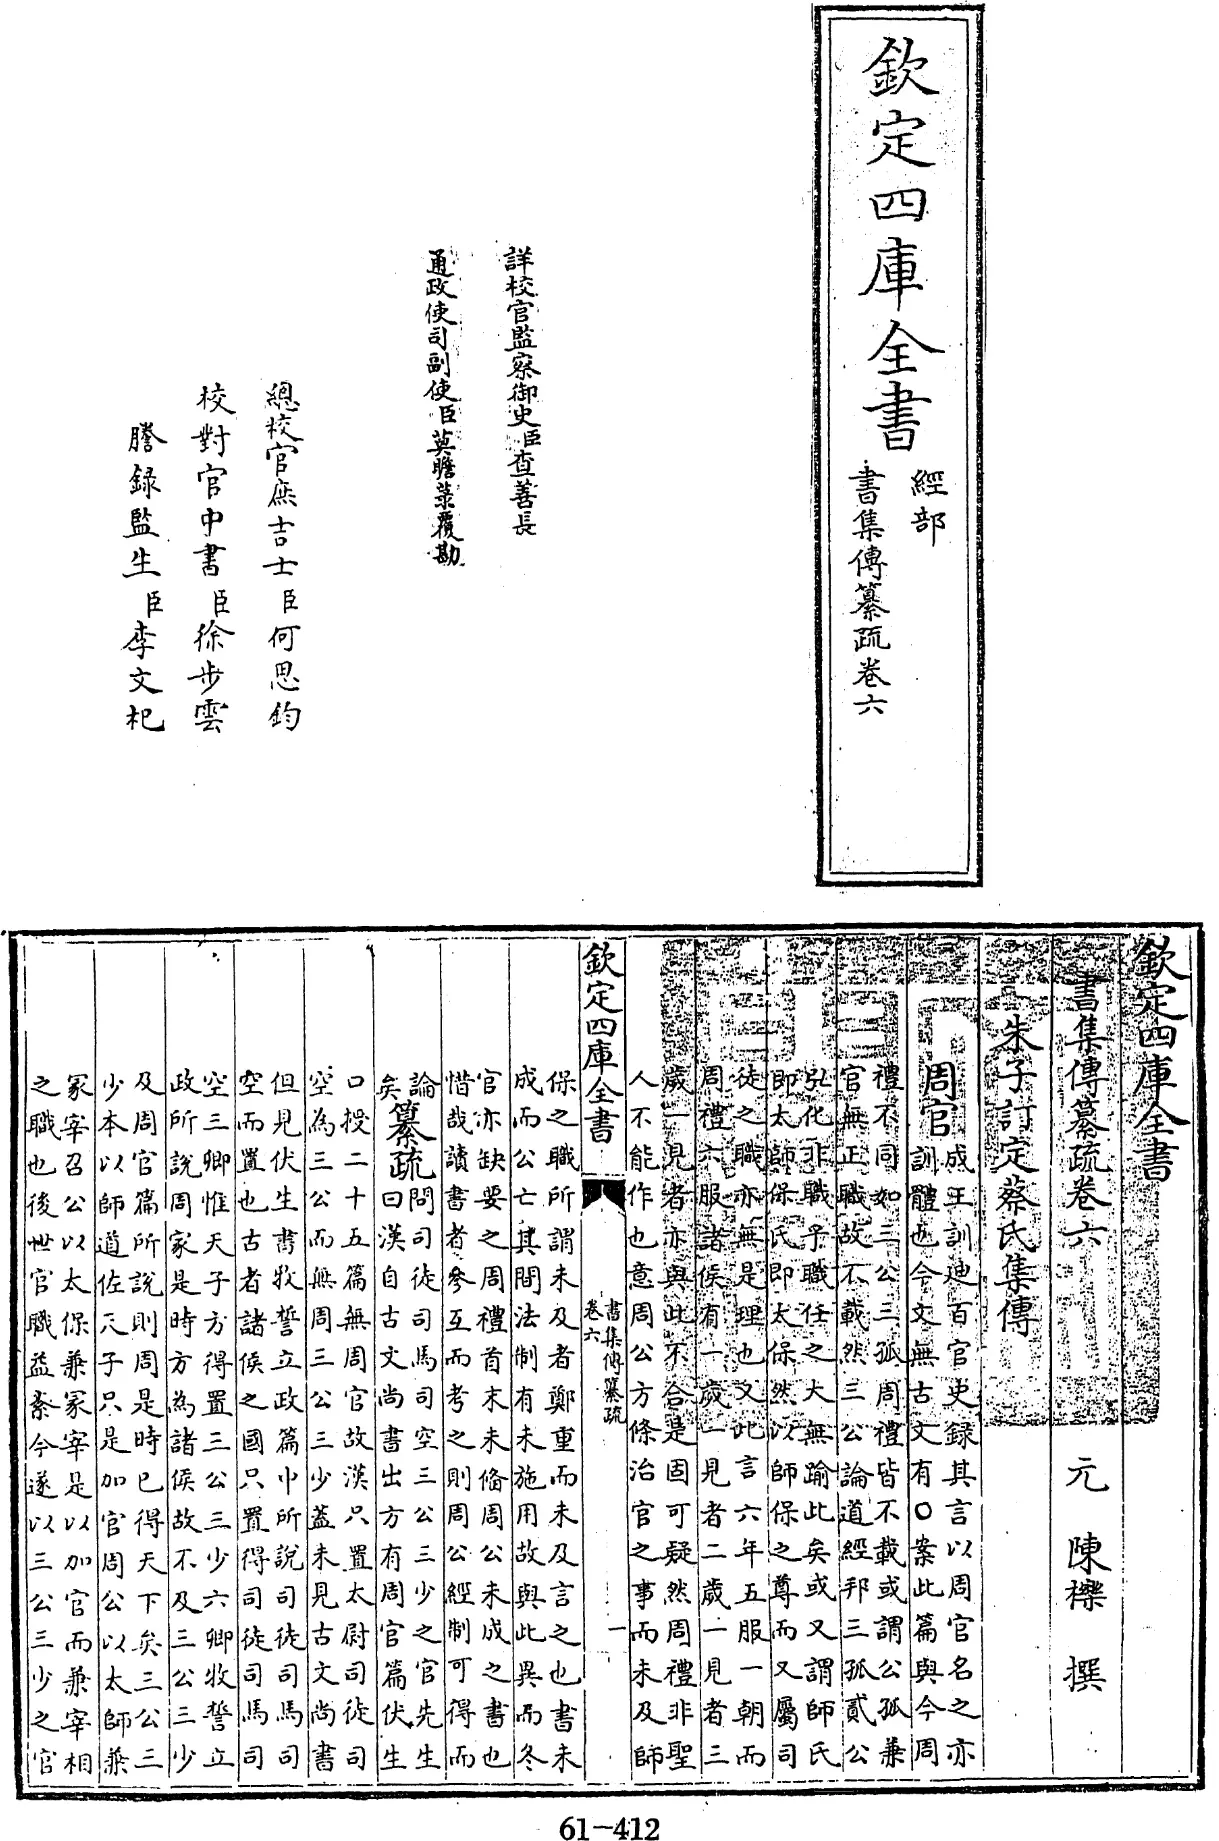 欽定四庫全書
經部
書集傳纂疏卷六
詳校官監察御史臣查善長
通政使司副使臣莫瞻菉覆勘
總校官庶吉士臣何思鈞
校對官中書臣徐步雲
謄録監生臣李文杞
欽定四庫全書
書集傳纂疏卷六
元 陳櫟 撰
朱子訂定蔡氏集傳
周官
成王訓迪百官史録其言以周官名之亦
訓體也今文無古文有○案此篇與今周
禮不同如三公三孤周禮皆不載或謂公孤兼
官無正職故不載然三公論道經邦三孤貳公
弘化非職乎職任之大無踰此矣或又謂師氏
即太師保氏即太保然以師保之尊而又屬司
徒之職亦無是理也又此言六年五服一朝而
周禮六服諸侯有一歲一見者二歲一見者三
歲一見者亦與此不合是固可疑然周禮非聖
人不能作也意周公方條治官之事而未及師
欽定四庫全書
書集傳纂疏
卷六
一
保之職所謂未及者鄭重而未及言之也書未
成而公亡其間法制有未施用故與此異而冬
官亦缺要之周禮首末未備周公未成之書也
惜哉讀書者參互而考之則周公經制可得而
論
矣
纂疏
問司徒司馬司空三公三少之官先生
曰漢自古文尚書出方有周官篇伏生
口授二十五篇無周官故漢只置太尉司徒司
空為三公而無周三公三少蓋未見古文尚書
但見伏生書牧誓立政篇中所說司徒司馬司
空而置也古者諸侯之國只置得司徒司馬司
空三卿惟天子方得置三公三少六卿牧誓立
政所說周家是時方為諸侯故不及三公三少
及周官篇所說則周是時已得天下矣三公三
少本以師道佐天子只是加官周公以太師兼
冢宰召公以太保兼冢宰是以加官而兼宰相
之職也後世官職益紊今遂以三公三少之官
61-412